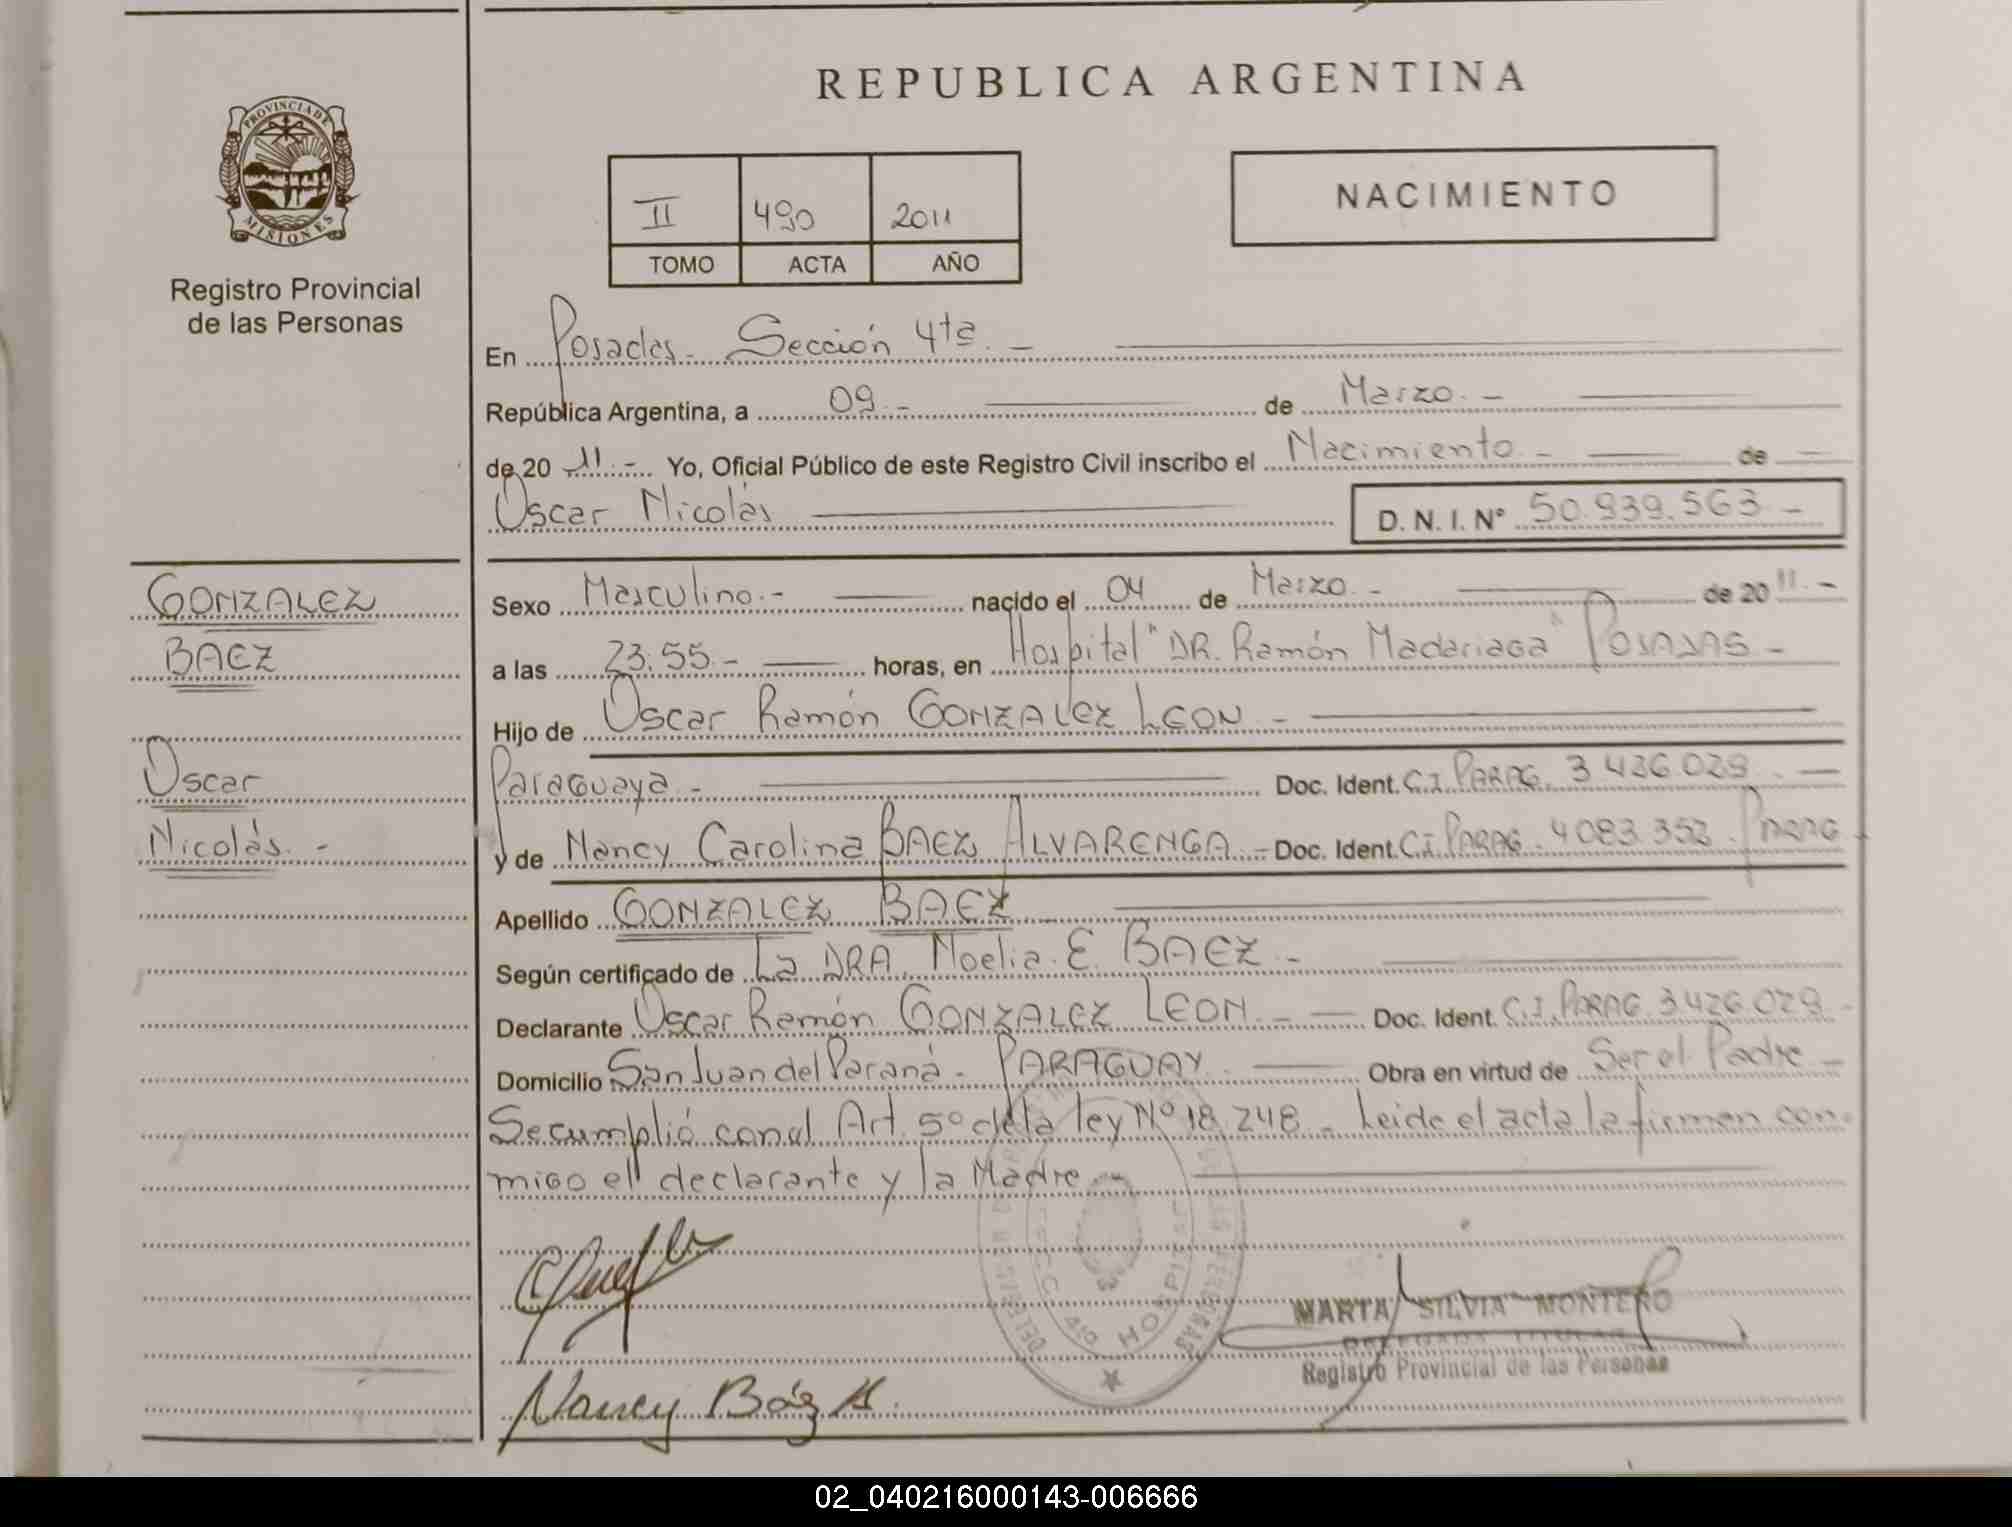 REPUBLICA ARGENTINA
PROVINCIA DE
MISIONES
Registro Provincial
de las Personas
II 490 2011
TOMO ACTA AÑO
NACIMIENTO
En Posadas - Sección 4ta. -
República Argentina, a 09 - de Marzo. -
de 20 11. - Yo, Oficial Público de este Registro Civil inscribo el Nacimiento - de -
Oscar Nicolás
D. N. I. Nº 50.939.563 -
GONZALEZ
BAEZ
Oscar
Nicolás. -
Sexo Masculino. - nacido el 04 de Marzo. - de 20 11. -
a las 23:55 - horas, en Hospital "DR. Ramón Madariaga" POSADAS -
Hijo de Oscar Ramón GONZALEZ LEON -
Paraguaya - Doc. Ident. C.I. PARAG. 3 426 029. -
y de Nancy Carolina BAEZ ALVARENGA - Doc. Ident. C.I. PARAG. 4083.352. PARAG
Apellido GONZALEZ BAEZ
Según certificado de La DRA. Noelia E. BAEZ. -
Declarante Oscar Ramón GONZALEZ LEON. - Doc. Ident. C.I. PARAG. 3426 029 -
Domicilio San Juan del Paraná - PARAGUAY. Obra en virtud de Ser el Padre -
Se cumplió con el Art. 5º de la ley Nº 18.248 - Leida el acta la firman con-
migo el declarante y la Madre
HOSPITAL
Nancy Báez A.
MARTA SILVIA MONTERO
DELEGADA TITULAR
Registro Provincial de las Personas
02_040216000143-006666